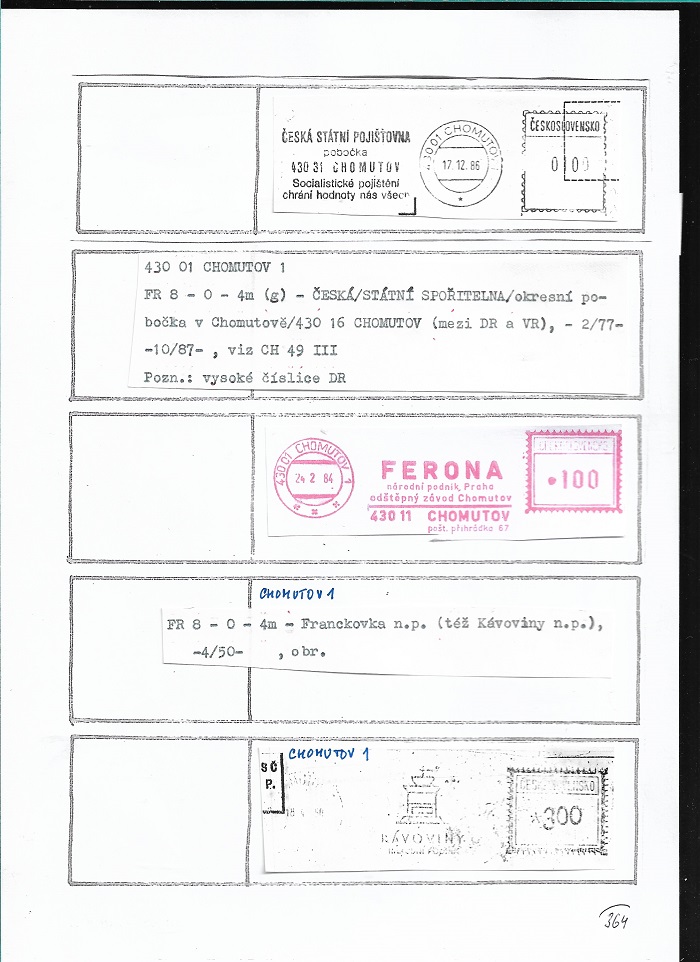 ČESKÁ STÁTNÍ POJIŠŤOVNA
pobočka
430 31 CHOMUTOV
Socialistické pojištění
chrání hodnoty nás všech
430 01 CHOMUTOV 1
17.12.86
ČESKOSLOVENSKO
0 00
430 01 CHOMUTOV 1
FR 8 - 0 - 4m (g) - ČESKÁ/STÁTNÍ SPOŘITELNA/okresní po-
bočka v Chomutově/430 16 CHOMUTOV (mezi DR a VR), - 2/77-
-10/87- , viz CH 49 III
Pozn.: vysoké číslice DR
430 01 CHOMUTOV 1
24 2 84
FERONA
národní podnik, Praha
odštěpný závod Chomutov
430 11 CHOMUTOV
pošt. přihrádka 67
ČESKOSLOVENSKO
100
CHOMUTOV 1
FR 8 - 0 - 4m - Franckovka n.p. (též Kávoviny n.p.),
-4/50- , obr.
CHOMUTOV 1
SČ
P.
KÁVOVINY
ČESKOSLOVENSKO
300
364